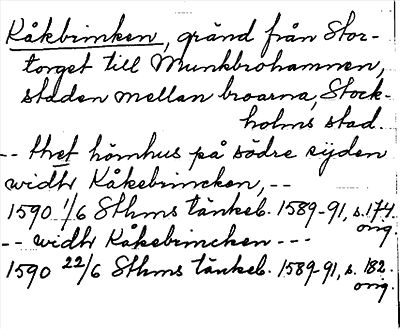 Kåkbrinken, gränd från Stor-
torget till Munkbrohamnen,
staden mellan broarna, Stock-
holms stad.
-- thet hörnhus på södre sijden
widhr Kåkebrincken, --
1590 1/6 Sthms tänkeb. 1589-91, s. 174.
orig.
-- widhr Kåkebrincken ---
1590 22/6 Sthms tänkeb. 1589-91, s. 182.
orig.